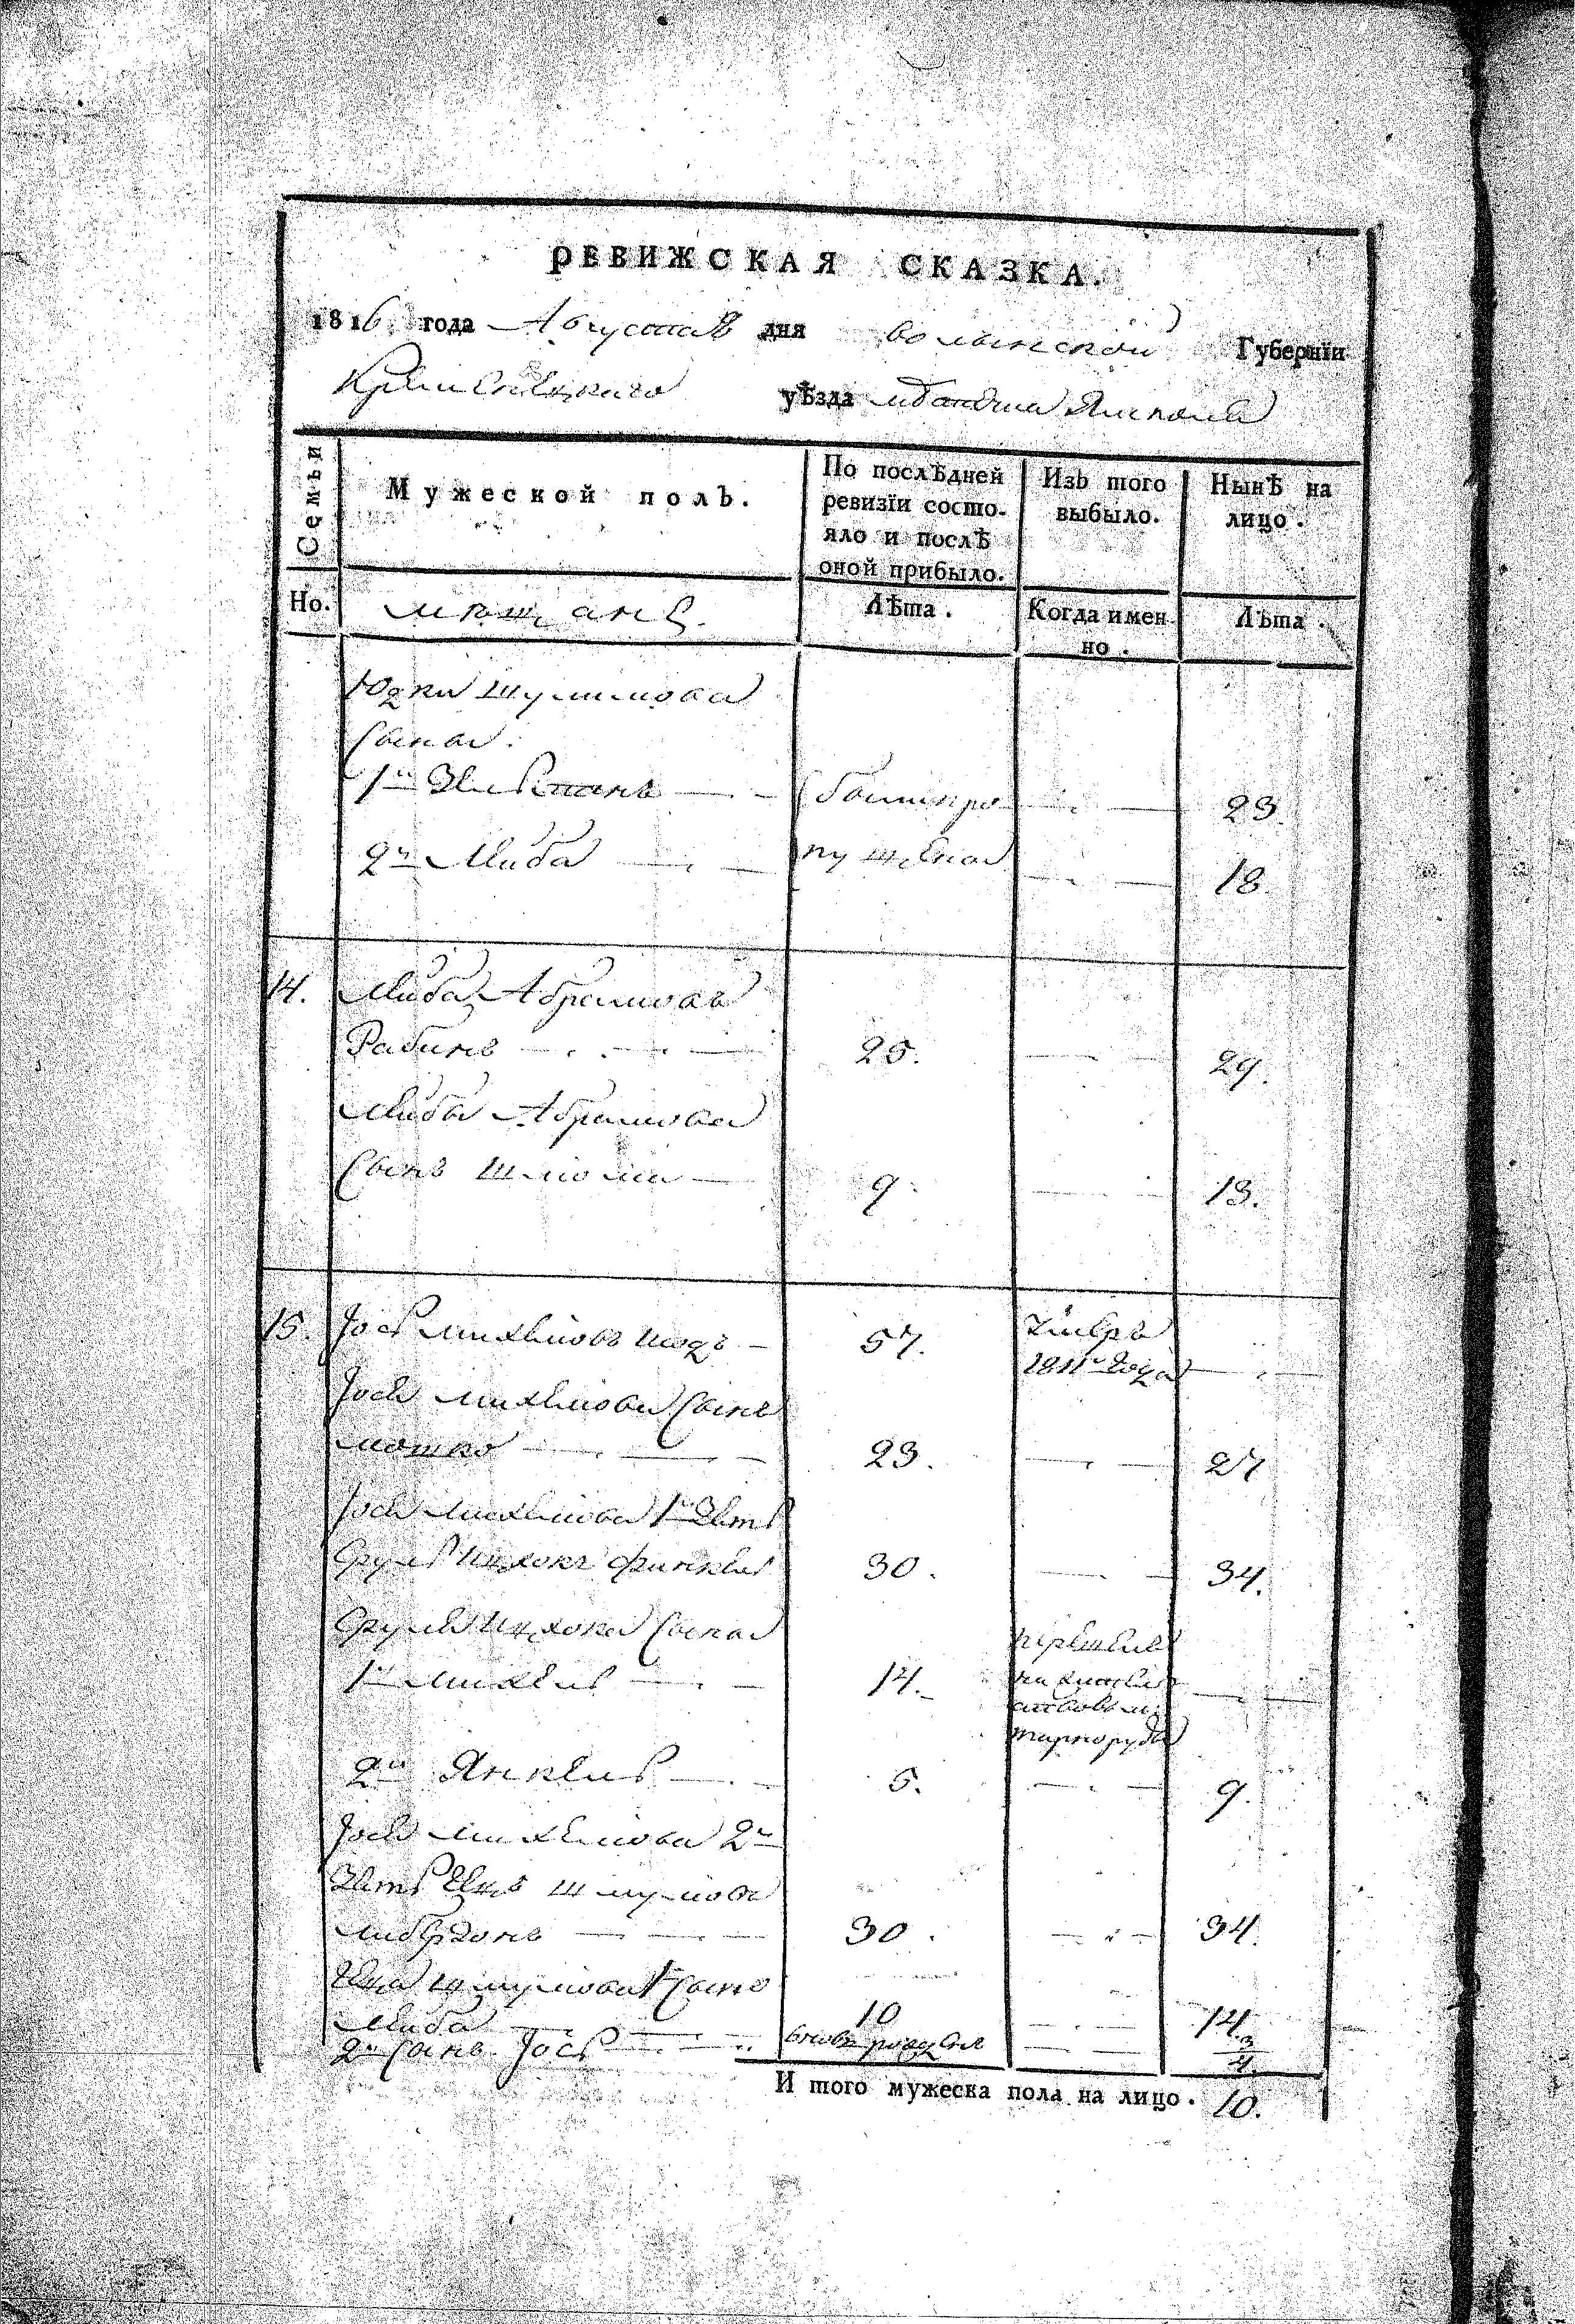 РЕВИЖСКАЯ СКАЗКА.
1816 года Августа 8 дня Волынской Губернїи
Кременецкаго уѣзда Ямполя
Семьи
Мужеской полъ.
По послѣдней ревизїи состо-яло и послѣ оной прибыло.
Изъ того выбыло.
Нынѣ на лицо.
Но. мѣщанъ.
Лѣта.
Когда имен-но.
Лѣта.
Юдки Шулимова
Сыны:
1й Зельманъ бѣли про 23.
2й Лейба пущены 18.
14. Лейба Абрамовъ
Рабинъ 25. 29.
Лейбы Абрамова
Сынъ Шлиома 9. 13.
15. Іось Михелювъ 57. умеръ
1811го года
Іося Михелюва Сынъ
Мошко 23. 27
Іося Михелюва 1й Зеть
Сруль Ицхокъ Финкель 30. 34.
Сруля Ицхока Сыны
1й Михель 14. перешелъ
2й Янкель 5. 9.
Іося Михелюва 2й
Зеть Шмулювъ
30. 34.
Шмулюва 1й Сынъ
Лейба 10 14.
2й Сынъ Іось вновь родился 3/4.
И того мужеска пола на лицо. 10.